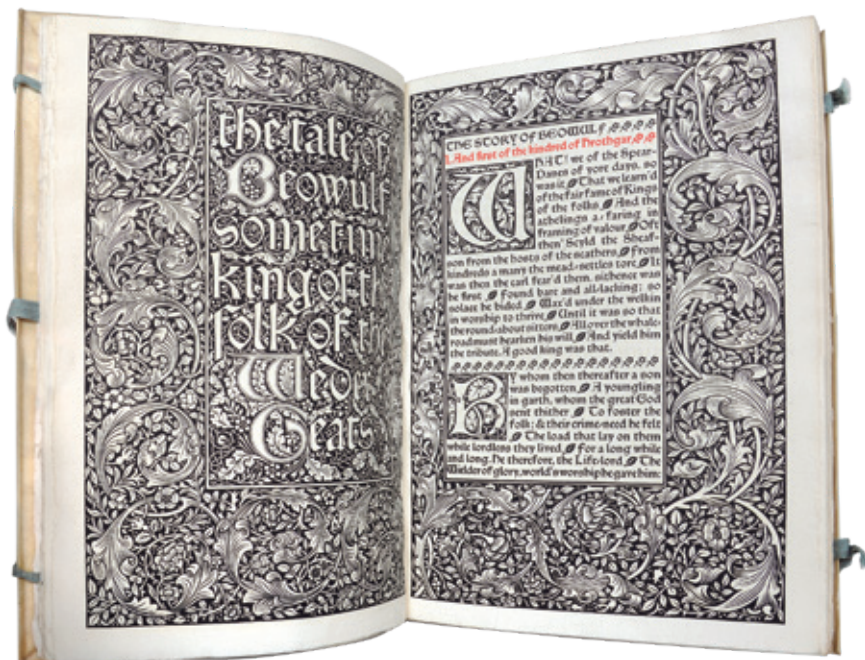 the tale
Beowulf
sometim
king of t
folk of t
Weder
Geats
THE STORY OF BEOWULF
I. And first of the kindred of Hrothgar.
WHAT! we of the Spear-
Danes of yore days, so
was it That we learn'd
of the fair fame of Kings
of the folks And the
athelings a-faring in
framing of valour. Oft
then Scyld the Sheaf-
son from the hosts of the scathers, From
kindreds a many the mead-settles tore; It
was then the earl fear'd them, sithence was
he first Found bare and all-lacking; so
solace he bided, Wax'd under the welkin
in worship to thrive, Until it was so that
the round-about sitters, All over the whale-
road must hearken his will And yield him
the tribute. A good king was that.
BY whom then thereafter a son
was begotten, A youngling
in garth, whom the great God
sent thither To foster the
folk; & their crime-need he felt
The load that lay on them
while lordless they lived For a long while
and long. He therefore, the Life-lord, The
Wielder of glory, world's worship he gave him: